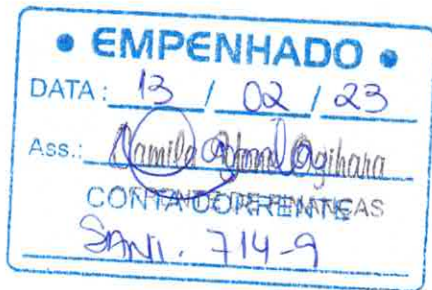 • EMPENHADO •
DATA: 13 / 02 / 23
Ass.: Camila Ogihara
CONTA CORRENTE
SANI. 714-9